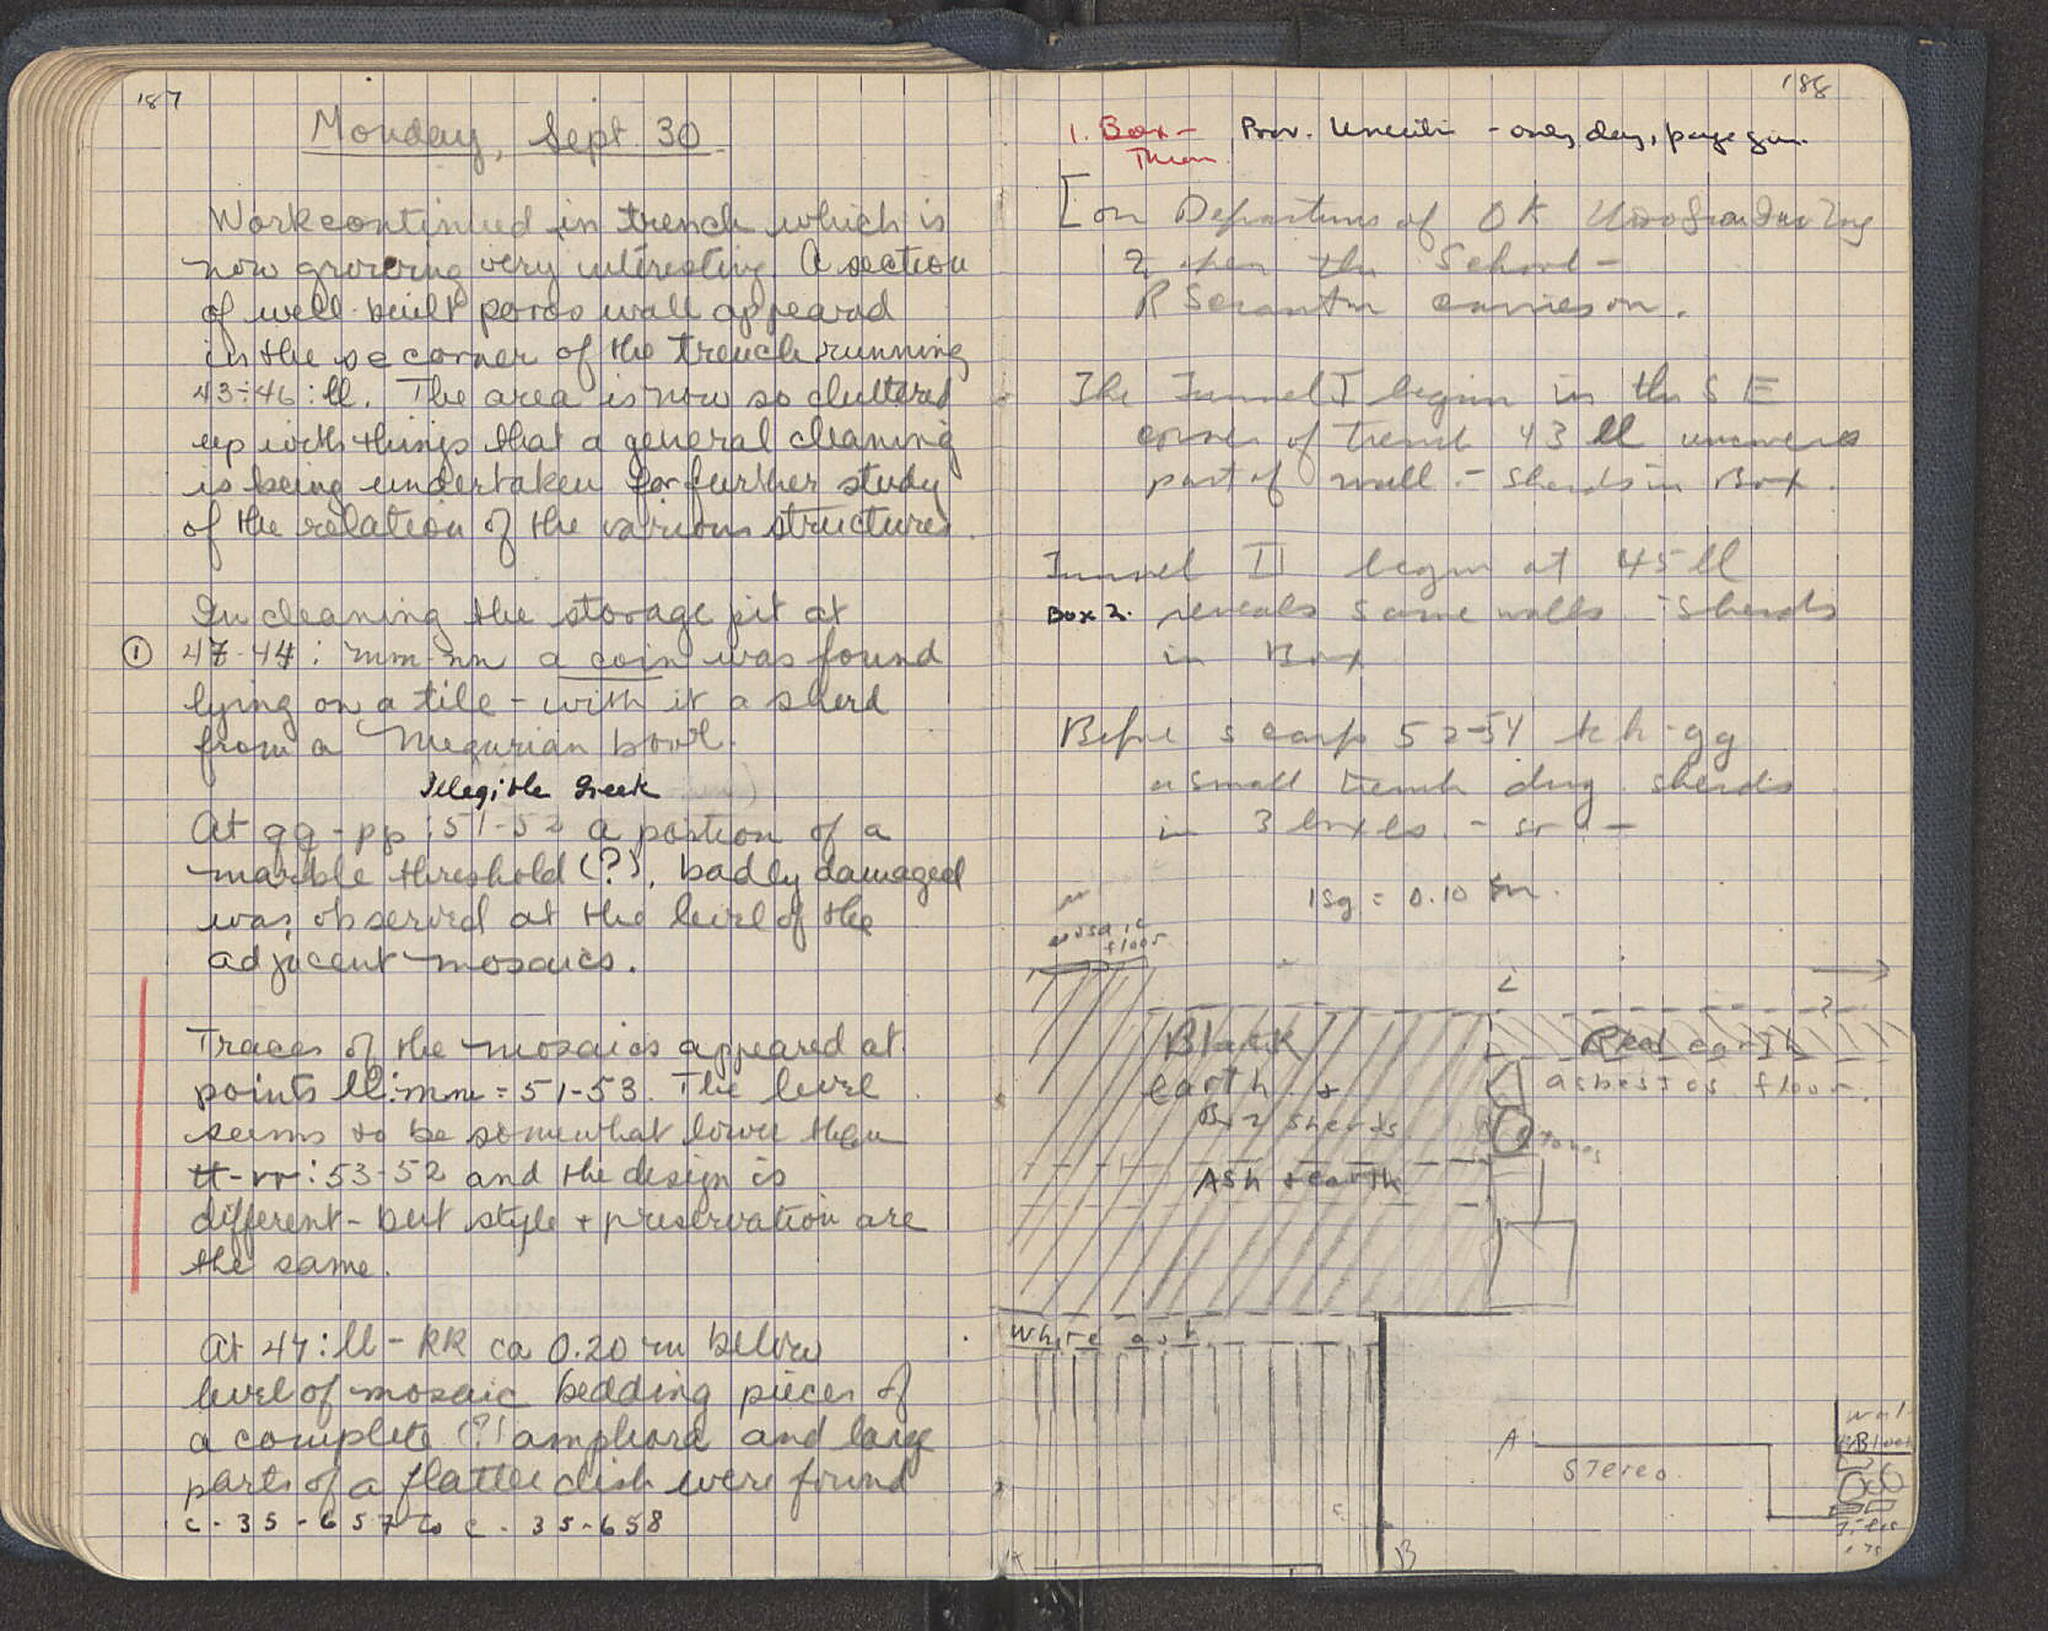 187
Monday, Sept. 30
Work continued in trench which is
now growing very interesting. A section
of well-built poros wall appeared
in the se corner of the trench running
43÷46:ll. The area is now so cluttered
up with things that a general cleaning
is being undertaken for further study
of the relation of the various structures.
In cleaning the storage pit at
① 47-44: mm-nn a coin was found
lying on a tile - with it a sherd
from a Megarian bowl.
Illegible Greek
At gg-pp:51-52 a portion of a
marble threshold (?), badly damaged
was observed at the level of the
adjacent mosaics.
Traces of the mosaics appeared at
points ll:mm=51-53. The level
seems to be somewhat lower than
tt-rr:53-52 and the design is
different - but style + preservation are
the same.
At 47:ll-KK ca 0.20 m below
level of mosaic bedding pieces of
a complete (?) amphora and large
parts of a flattle dish were found
c-35-657 to c-35-658
188
1. Box - Prov. - only day, page giv.
[on Departure of OK
2 open the School -
R Scranton carries on.
The Tunnel I begun in the SE
corner of trench 43 ll uncovers
part of wall - Sherds in Box.
Tunnel II begun at 45 ll
Box 2. reveals same walls - Sherds
in Box
Before scarp 52-54 kh-gg
a small trench dug. sherds
in 3 boxes. -
1 sq = 0.10 m.
mosaic
floor
?
Black
earth +
Byz sherds
Red earth
asbestos floor.
stones
Ash + earth
White ash
A
Stereo
B
Wall
Block
Tiles